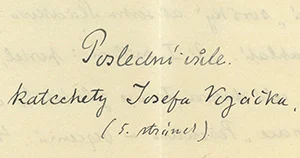 Poslední vůle.
katechety Josefa Vojáčka,
(5. stránek).